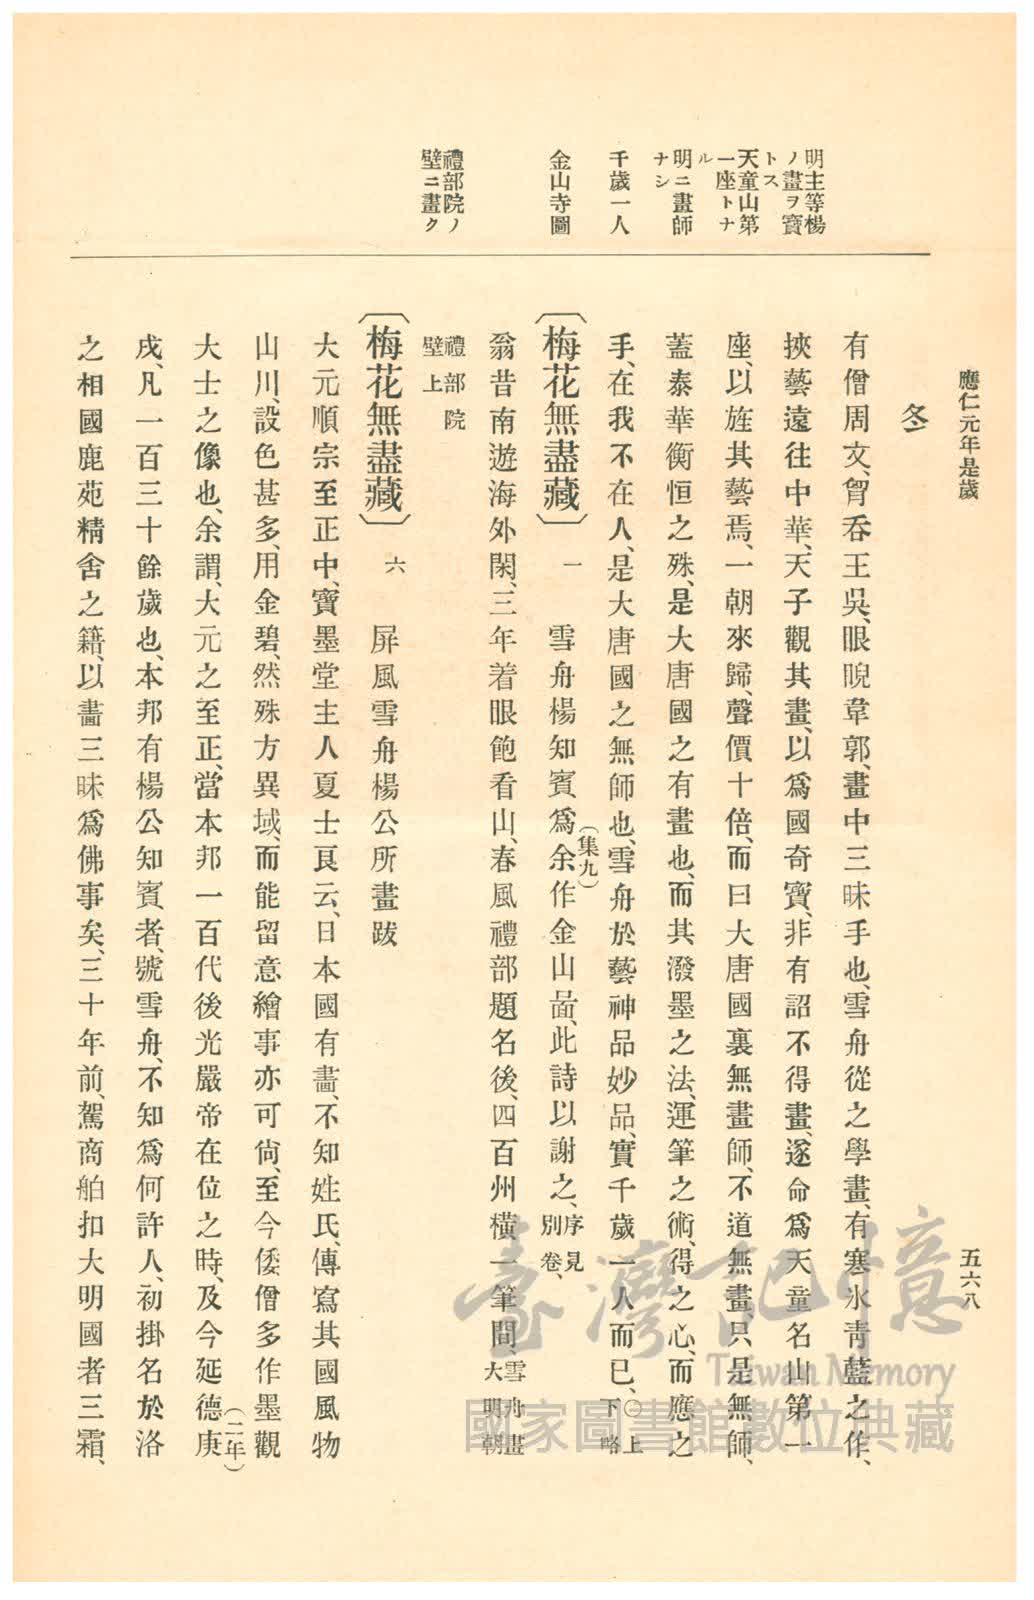 應仁元年是歲
五六八
冬
明主等楊
ノ畫ヲ寶
トス
天童山第
一座トナ
ル
明ニ畫師
ナシ
千歲一人
金山寺圖
禮部院ノ
壁ニ畫ク
有僧周文、胷呑王吳、眼睨韋郭、畫中三昧手也、雪舟從之學畫、有寒氷靑藍之作、
挾藝遠往中華、天子觀其畫、以爲國奇寶、非有詔不得畫、遂命爲天童名山第一
座、以旌其藝焉、一朝來歸、聲價十倍、而曰大唐國裏無畫師、不道無畫只是無師、
蓋泰華衡恒之殊、是大唐國之有畫也、而其潑墨之法、運筆之術、得之心、而應之
手、在我不在人、是大唐國之無師也、雪舟於藝神品妙品、實千歲一人而已、〇上
下略
〔梅花無盡藏〕 一 雪舟楊知賓爲余作金山啚、此詩以謝之、序見
別卷、
(集九)
翁昔南遊海外閑、三年着眼飽看山、春風禮部題名後、四百州橫一筆間、雪舟畫
大明朝
禮部院
壁上
〔梅花無盡藏〕 六 屏風雪舟楊公所畫跋
大元順宗至正中、寶墨堂主人夏士良云、日本國有畵、不知姓氏、傳寫其國風物
山川、設色甚多、用金碧、然殊方異域、而能留意繪事亦可尙、至今倭僧多作墨觀
大士之像也、余謂、大元之至正、當本邦一百代後光嚴帝在位之時、及今延德庚
(二年)
戌、凡一百三十餘歲也、本邦有楊公知賓者、號雪舟、不知爲何許人、初掛名於洛
之相國鹿苑精舍之籍、以畵三昧爲佛事矣、三十年前、駕商舶扣大明國者三霜、
臺灣記憶
Taiwan Memory
國家圖書館數位典藏